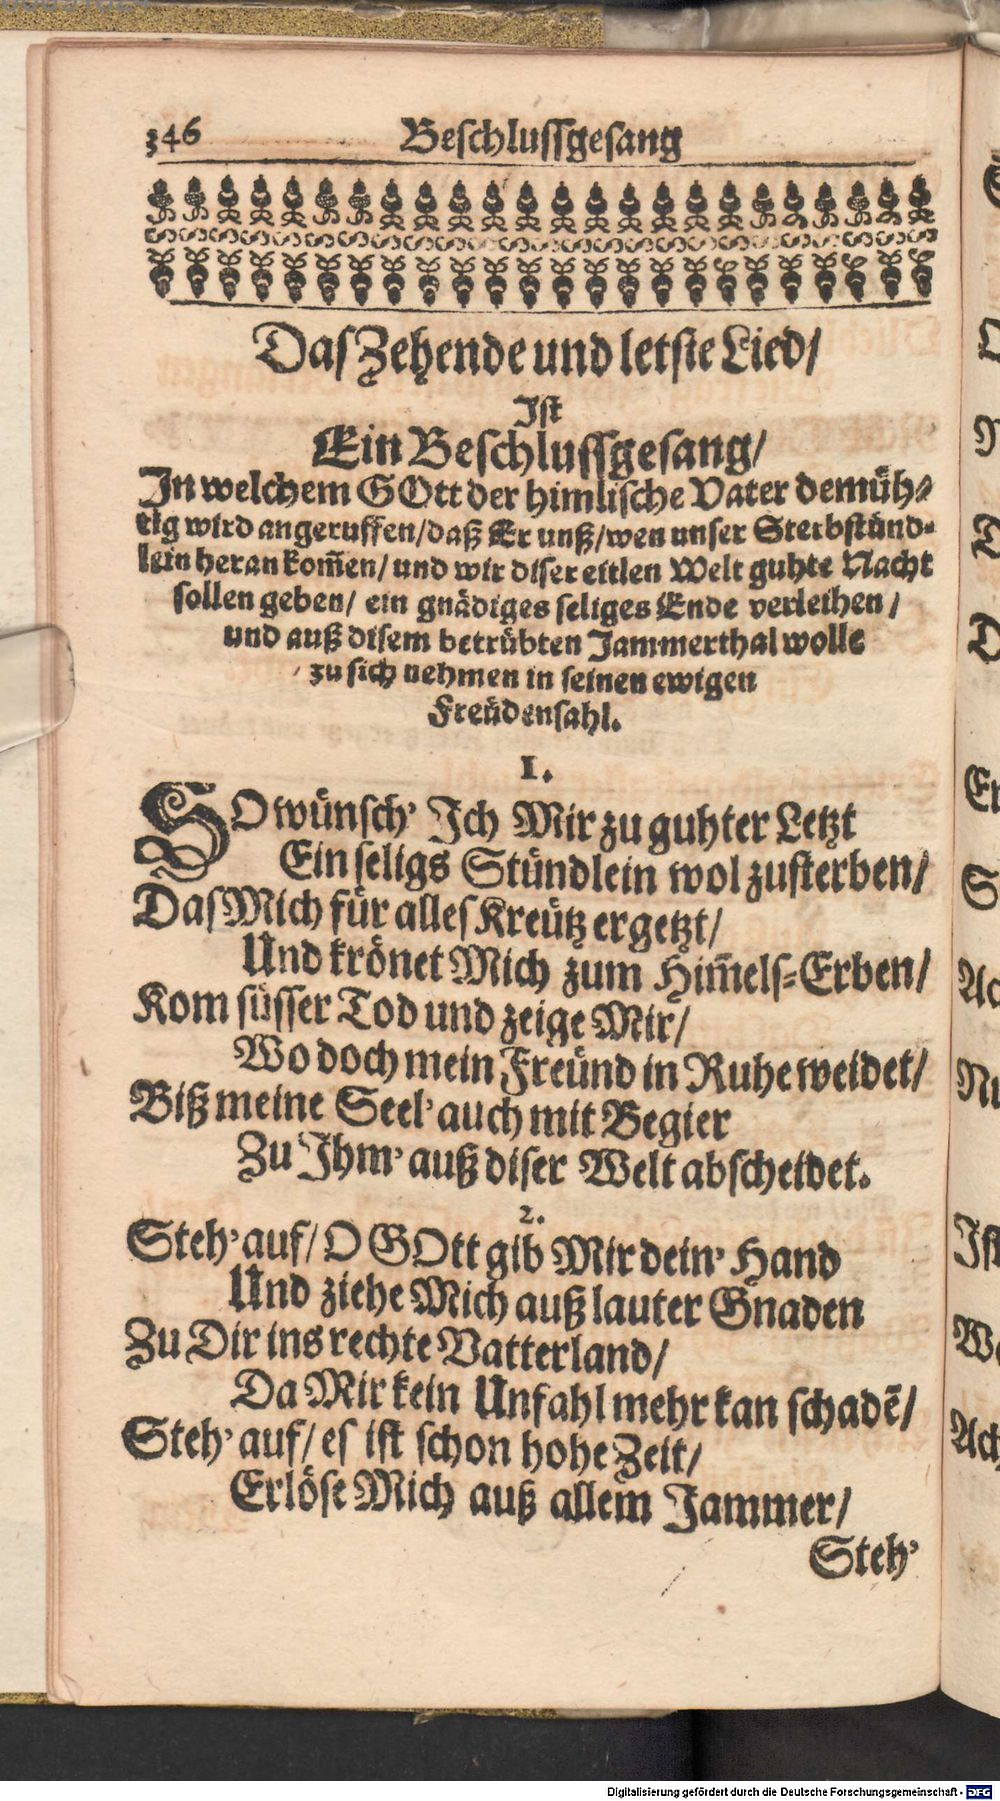 346 Beschlussgesang
Das Zehende und letste Lied/
Ist
Ein Beschlussgesang/
In welchem GOtt der himlische Vater demüh-
tig wird angeruffen/daß Er unß/wen unser Sterbstünd-
lein heran kom̃en/ und wir diser eitlen Welt guhte Nacht
sollen geben/ ein gnädiges seliges Ende verleihen/
und auß disem betrübten Jammerthal wolle
zu sich nehmen in seinen ewigen
Freüdensahl.
1.
SO wünsch' Ich Mir zu guhter Letzt
Ein seligs Stündlein wol zusterben/
Das Mich für alles Kreütz ergetzt/
Und krönet Mich zum Him̃els-Erben/
Kom süsser Tod und zeige Mir/
Wo doch mein Freünd in Ruhe weidet/
Biß meine Seel' auch mit Begier
Zu Ihm' auß diser Welt abscheidet.
2.
Steh' auf/ O GOtt gib Mir dein' Hand
Und ziehe Mich auß lauter Gnaden
Zu Dir ins rechte Vatterland/
Da Mir kein Unfahl mehr kan schadẽ/
Steh' auf/ es ist schon hohe Zeit/
Erlöse Mich auß allem Jammer/
Steh'
Digitalisierung gefördert durch die Deutsche Forschungsgemeinschaft - DFG